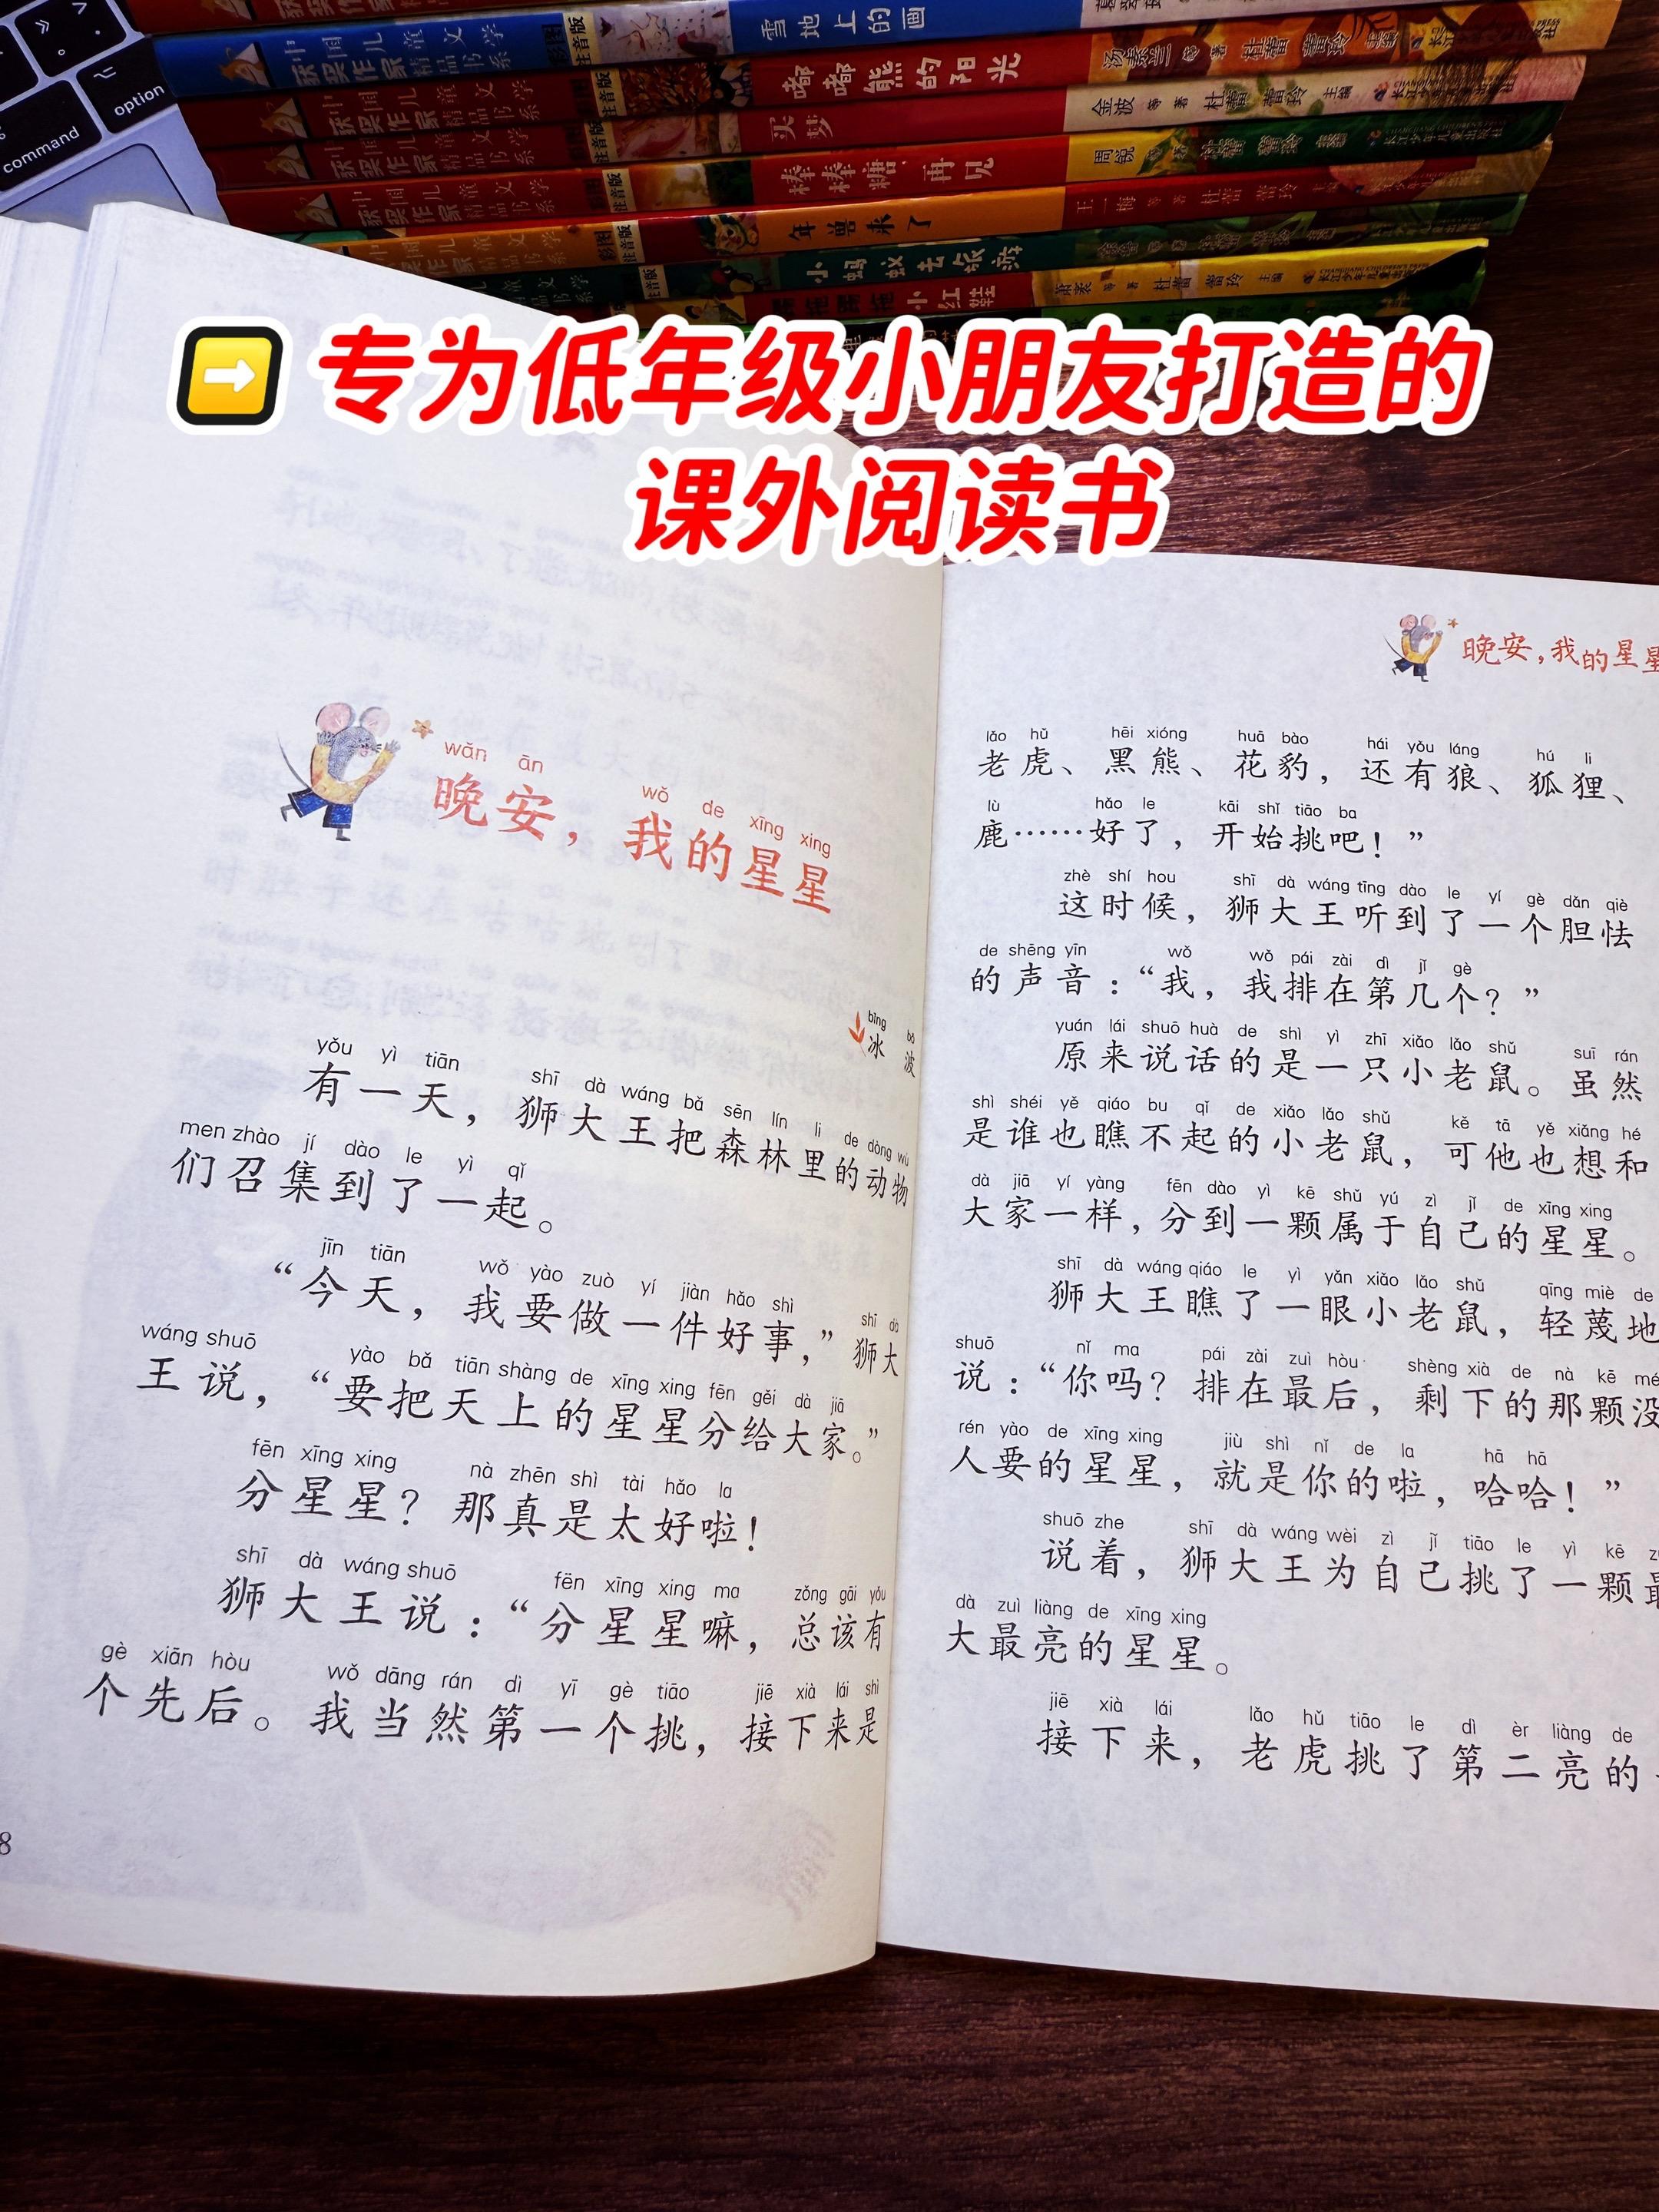 command
option
中国儿童文学
获奖作家精品书系
注音版
雪地上的画
中国儿童文学
获奖作家精品书系
注音版
嘟嘟熊的阳光
汤素兰 等 著
中国儿童文学
获奖作家精品书系
注音版
买梦
金波 等 著 杜蕾 蕾玲 主编
中国儿童文学
获奖作家精品书系
注音版
棒棒糖，再见
周锐
中国儿童文学
获奖作家精品书系
彩图
注音版
年兽来了
王一梅 等 著 杜蕾 蕾玲 主编
注音版
小蚂蚁去旅游
小红鞋
萧袤 等 著 杜蕾 蕾玲 主编
➡ 专为低年级小朋友打造的
课外阅读书
wǎn ān wǒ de xīng xing
晚安，我的星星
bīng bō
冰 波
yǒu yì tiān shī dà wáng bǎ sēn lín li de dòng wù
有一天，狮大王把森林里的动物
men zhào jí dào le yì qǐ
们召集到了一起。
jīn tiān wǒ yào zuò yí jiàn hǎo shì shī dà
“今天，我要做一件好事，”狮大
wáng shuō yào bǎ tiān shàng de xīng xing fēn gěi dà jiā
王说，“要把天上的星星分给大家。”
fēn xīng xing nà zhēn shì tài hǎo la
分星星？那真是太好啦！
shī dà wáng shuō fēn xīng xing ma zǒng gāi yǒu
狮大王说：“分星星嘛，总该有
gè xiān hòu wǒ dāng rán dì yī gè tiāo jiē xià lái shì
个先后。我当然第一个挑，接下来是
8
晚安，我的星星
lǎo hǔ hēi xióng huā bào hái yǒu láng hú li
老虎、黑熊、花豹，还有狼、狐狸、
lù hǎo le kāi shǐ tiāo ba
鹿……好了，开始挑吧！”
zhè shí hou shī dà wáng tīng dào le yí gè dǎn qiè
这时候，狮大王听到了一个胆怯
de shēng yīn wǒ wǒ pái zài dì jǐ gè
的声音：“我，我排在第几个？”
yuán lái shuō huà de shì yì zhī xiǎo lǎo shǔ suī rán
原来说话的是一只小老鼠。虽然
shì shéi yě qiáo bu qǐ de xiǎo lǎo shǔ kě tā yě xiǎng hé
是谁也瞧不起的小老鼠，可他也想和
dà jiā yí yàng fēn dào yì kē shǔ yú zì jǐ de xīng xing
大家一样，分到一颗属于自己的星星。
shī dà wáng qiáo le yì yǎn xiǎo lǎo shǔ qīng miè de
狮大王瞧了一眼小老鼠，轻蔑地
shuō nǐ ma pái zài zuì hòu shèng xià de nà kē mé
说：“你吗？排在最后，剩下的那颗没
rén yào de xīng xing jiù shì nǐ de la hā hā
人要的星星，就是你的啦，哈哈！”
shuō zhe shī dà wáng wèi zì jǐ tiāo le yì kē
说着，狮大王为自己挑了一颗最
dà zuì liàng de xīng xing
大最亮的星星。
jiē xià lái lǎo hǔ tiāo le dì èr liàng de
接下来，老虎挑了第二亮的